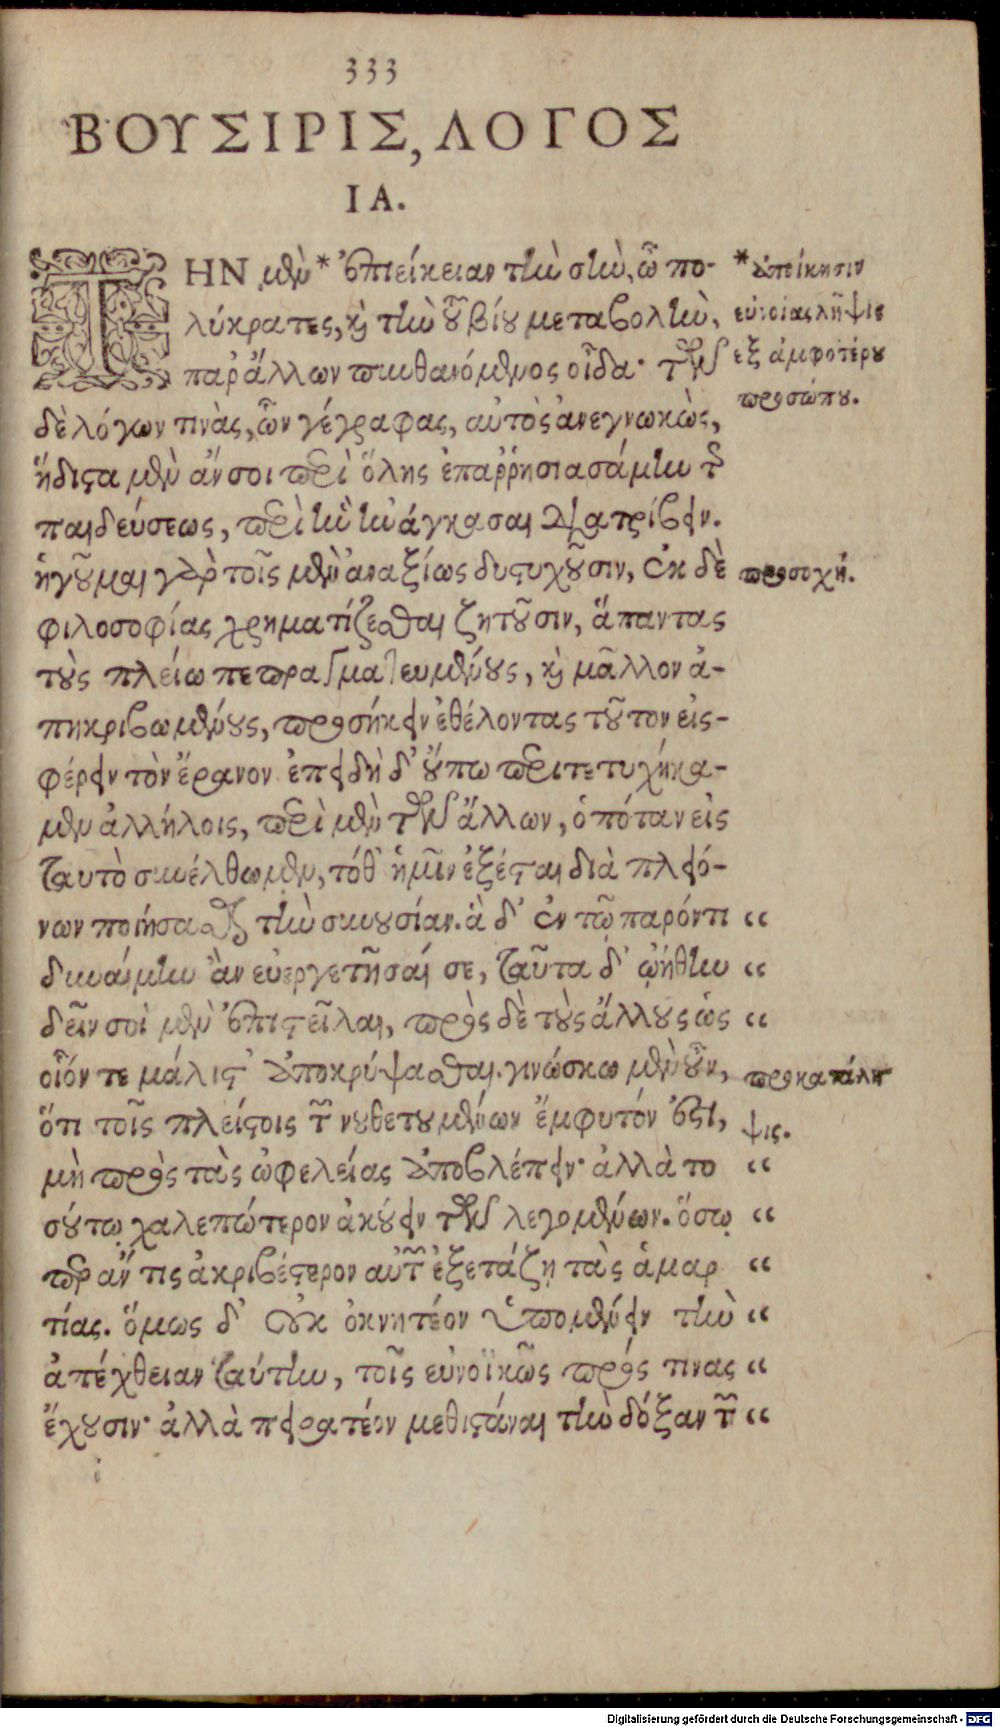 333
ΒΟΥΣΙΡΙΣ, ΛΟΓΟΣ
ΙΑ.
ΤΗΝ μὲν * ἐπιείκειαν τὴν σὴν, ὦ πο-
λύκρατες, καὶ τὴν τοῦ βίου μεταβολὴν,
παρ᾽ ἄλλων πυνθανόμενος οἶδα· τῶν
δὲ λόγων τινὰς, ὧν γέγραφας, αὐτὸς ἀνεγνωκὼς,
ἥδιστα μὲν ἄν σοι περὶ ὅλης ἐπαῤῥησιασάμην τῆς
παιδεύσεως, περὶ ἣν ἠνάγκασαι διατρίβειν.
ἡγοῦμαι γὰρ τοῖς μὲν ἀναξίως δυστυχοῦσιν, ἐκ δὲ
φιλοσοφίας χρηματίζεσθαι ζητοῦσιν, ἅπαντας
τοὺς πλείω πεπραγματευμένους, καὶ μᾶλλον ἀ-
πηκριβωμένους, προσήκειν ἐθέλοντας τοῦτον εἰς-
φέρειν τὸν ἔρανον ἐπειδὴ δ᾽ οὔπω περιτετυχήκα-
μεν ἀλλήλοις, περὶ μὲν τῶν ἄλλων, ὁπόταν εἰς
ταυτὸ συνέλθωμεν, τόθ᾽ ἡμῖν ἐξέσται διὰ πλειό-
νων ποιήσασθαι τὴν συνουσίαν. ἃ δ᾽ ἐν τῷ παρόντι “
δυναίμην ἂν εὐεργετῆσαί σε, ταῦτα δ᾽ ᾠήθην “
δεῖν σοὶ μὲν ἐπιστεῖλαι, πρὸς δὲ τοὺς ἄλλους ὡς “
οἷόν τε μάλιστ᾽ ἀποκρύψασθαι. γινώσκω μὲν οὖν,
ὅτι τοῖς πλείστοις τῶν νουθετουμένων ἔμφυτόν ἐστι,
μὴ πρὸς τὰς ὠφελείας ἀποβλέπειν· ἀλλὰ το “
σούτῳ χαλεπώτερον ἀκούειν τῶν λεγομένων. ὅσῳ “
περ ἄν τις ἀκριβέστερον αὐτῶν ἐξετάζῃ τὰς ἁμαρ “
τίας. ὅμως δ᾽ οὐκ ὀκνητέον ὑπομένειν τὴν “
ἀπέχθειαν ταύτην, τοῖς εὐνοϊκῶς πρός τινας “
ἔχουσιν· ἀλλὰ πειρατέον μεθιστάναι τὴν δόξαν τῶν “
* ἀπείκησιν
εὐνοίας λῆψις
ἐξ ἀμφοτέρου
προσώπου.
προσοχή.
προκατάλη
ψις.
Digitalisierung gefördert durch die Deutsche Forschungsgemeinschaft - DFG